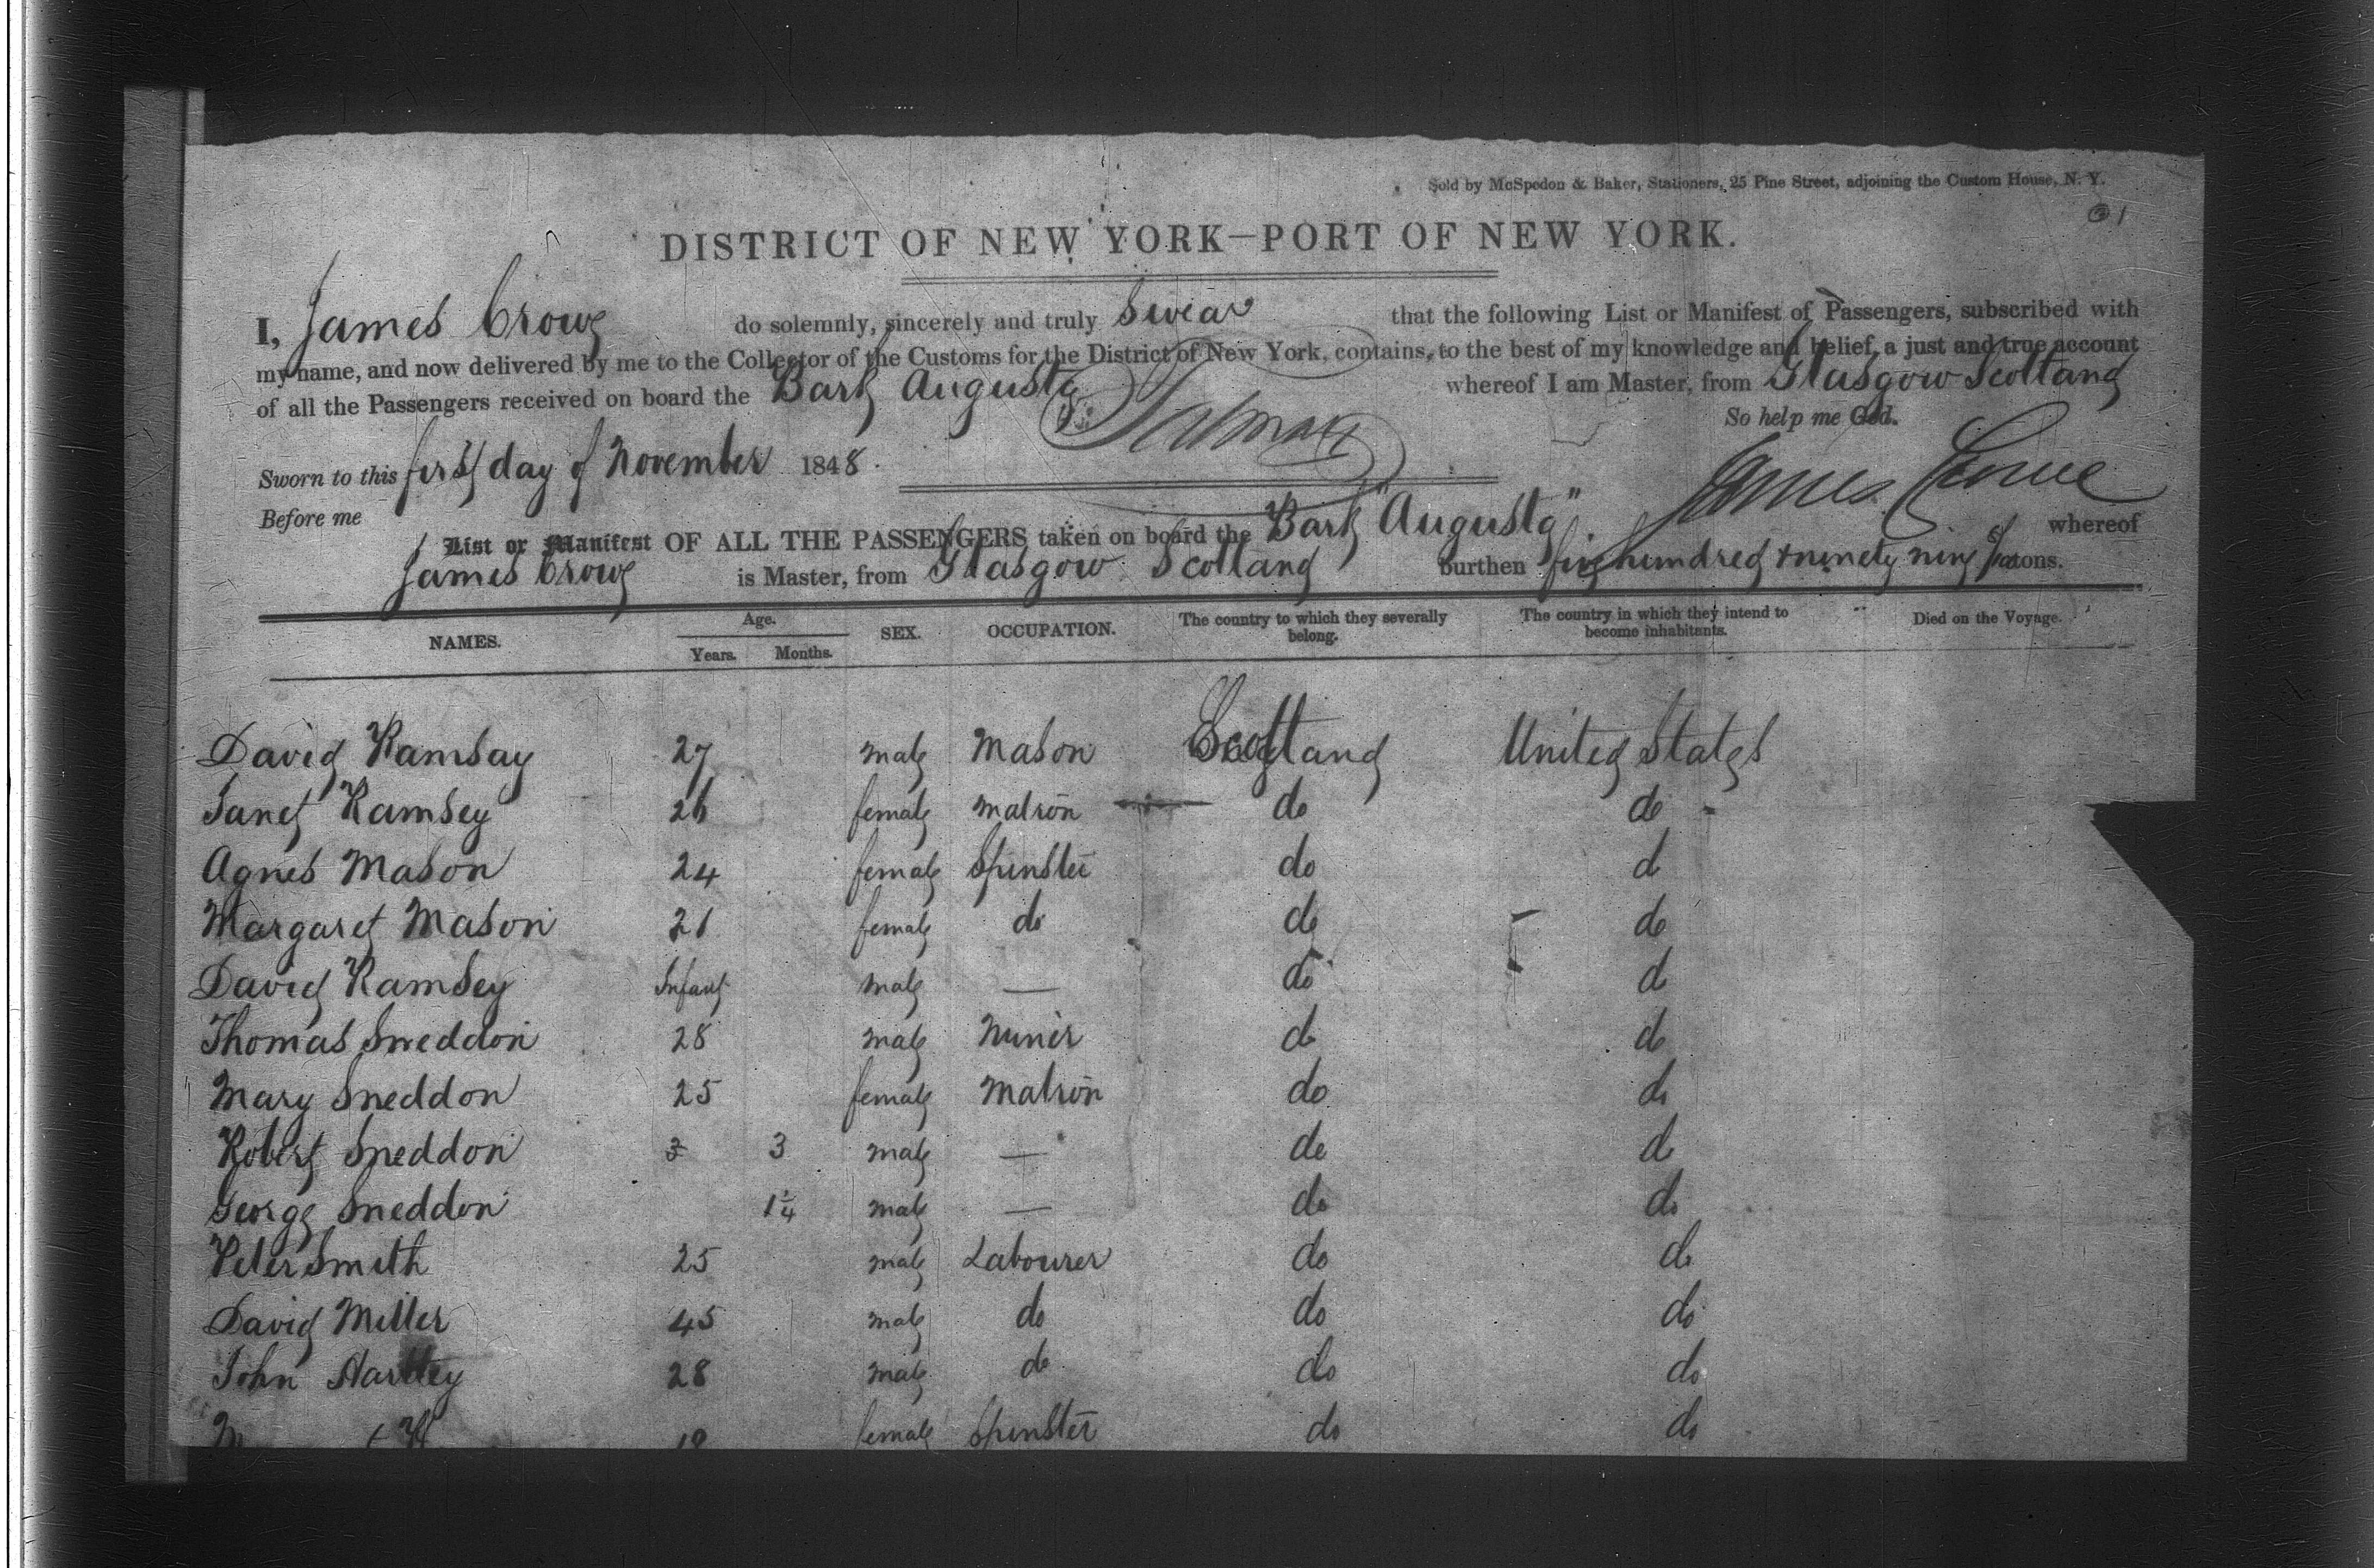 Sold by McSpedon & Baker, Stationers, 25 Pine Street, adjoining the Custom House, N. Y.
DISTRICT OF NEW YORK—PORT OF NEW YORK.
I, James Crowe do solemnly, sincerely and truly Swear that the following List or Manifest of Passengers, subscribed with
my name, and now delivered by me to the Collector of the Customs for the District of New York, contains, to the best of my knowledge and belief, a just and true account
of all the Passengers received on board the Bark Augusta whereof I am Master, from Glasgow Scotland
So help me God.
Sworn to this first day of November 1848.
James Crowe
Before me
List or Manifest OF ALL THE PASSENGERS taken on board the Bark "Augusta" whereof
James Crowe is Master, from Glasgow Scotland burthen five hundred & ninety nine tons.
NAMES. Age. Years. Months. SEX. OCCUPATION. The country to which they severally belong. The country in which they intend to become inhabitants. Died on the Voyage.
David Ramsay 27 male Mason Scotland United States
Janet Ramsey 26 female Matron do do
Agnes Mason 24 female Spinster do d
Margaret Mason 21 female do do do
David Ramsey Infant male — do do
Thomas Sneddon 28 male Miner do do
Mary Sneddon 25 female Matron do do
Robert Sneddon 3 male — do do
George Sneddon 1¼ male — do do
Peter Smith 25 male Labourer do do
David Miller 45 male do do do
John Hartley 28 male do do do
female Spinster do do